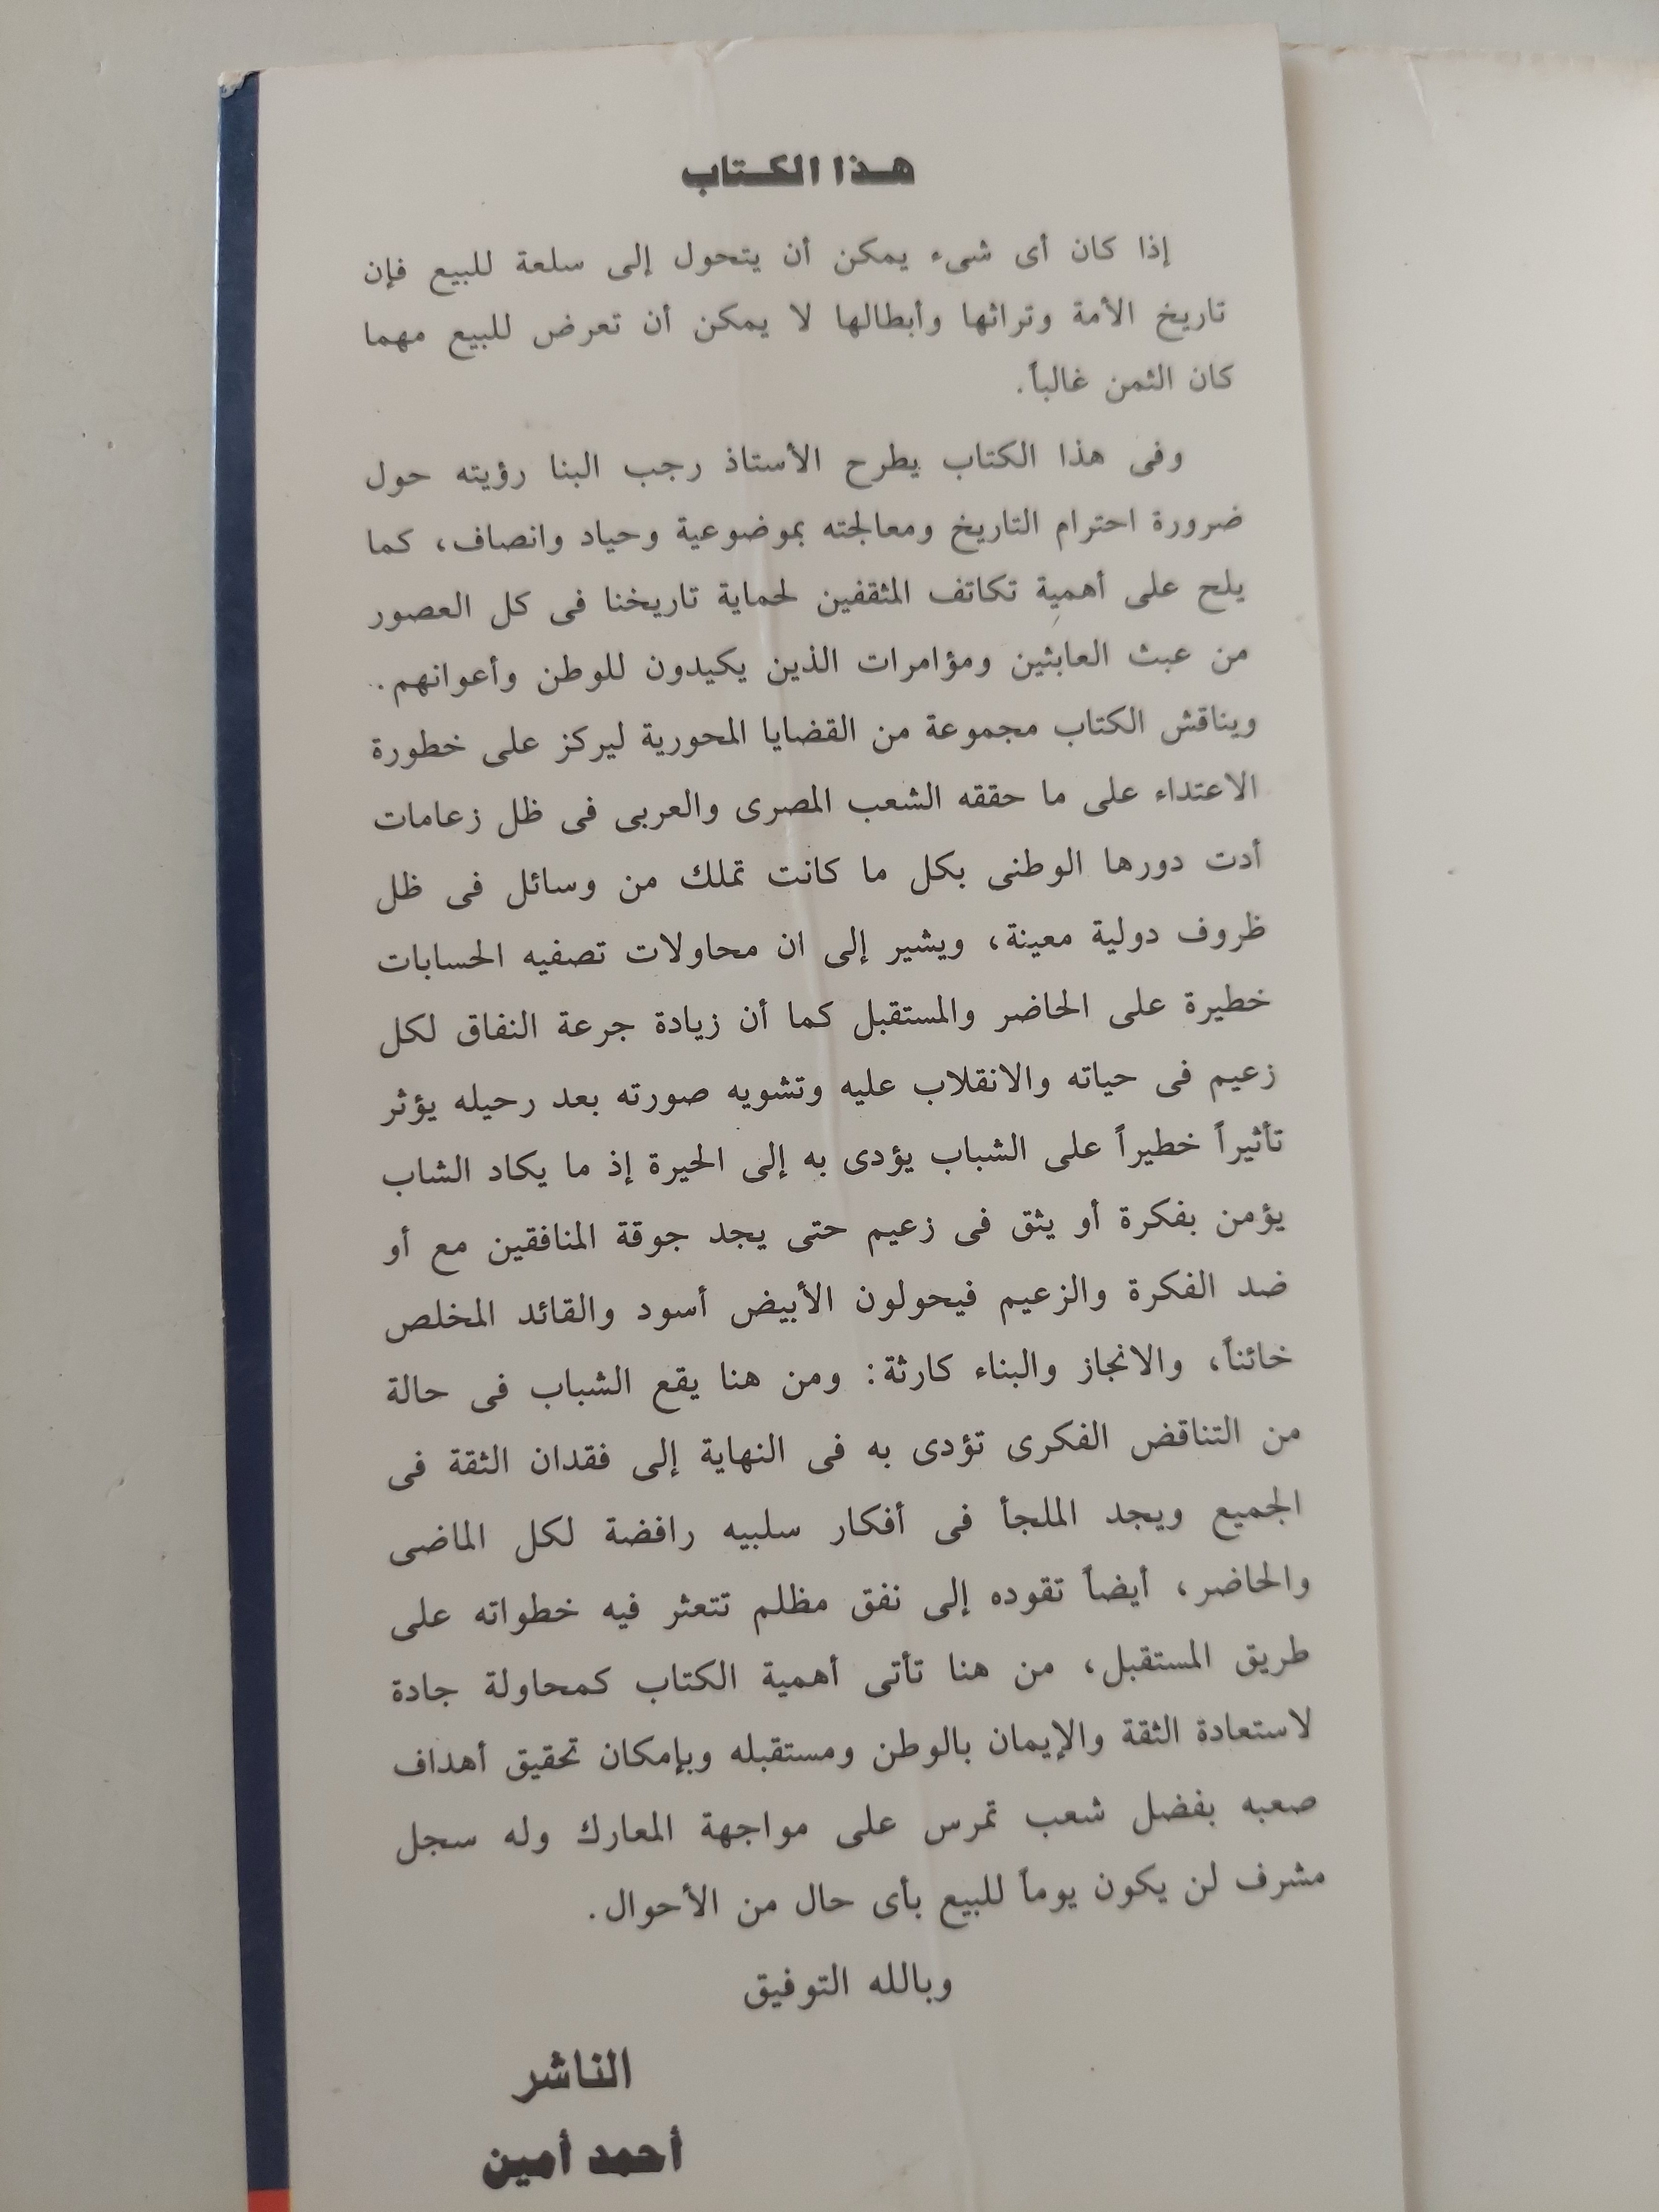 هذا الكتاب
إذا كان أى شىء يمكن أن يتحول إلى سلعة للبيع فإن
تاريخ الأمة وتراثها وأبطالها لا يمكن أن تعرض للبيع مهما
كان الثمن غالباً.
وفى هذا الكتاب يطرح الأستاذ رجب البنا رؤيته حول
ضرورة احترام التاريخ ومعالجته بموضوعية وحياد وانصاف، كما
يلح على أهمية تكاتف المثقفين لحماية تاريخنا فى كل العصور
من عبث العابثين ومؤامرات الذين يكيدون للوطن وأعوانهم.
ويناقش الكتاب مجموعة من القضايا المحورية ليركز على خطورة
الاعتداء على ما حققه الشعب المصرى والعربى فى ظل زعامات
أدت دورها الوطنى بكل ما كانت تملك من وسائل فى ظل
ظروف دولية معينة، ويشير إلى ان محاولات تصفيه الحسابات
خطيرة على الحاضر والمستقبل كما أن زيادة جرعة النفاق لكل
زعيم فى حياته والانقلاب عليه وتشويه صورته بعد رحيله يؤثر
تأثيراً خطيراً على الشباب يؤدى به إلى الحيرة إذ ما يكاد الشاب
يؤمن بفكرة أو يثق فى زعيم حتى يجد جوقة المنافقين مع أو
ضد الفكرة والزعيم فيحولون الأبيض أسود والقائد المخلص
خائناً، والانجاز والبناء كارثة: ومن هنا يقع الشباب فى حالة
من التناقض الفكرى تؤدى به فى النهاية إلى فقدان الثقة فى
الجميع ويجد الملجأ فى أفكار سلبيه رافضة لكل الماضى
والحاضر، أيضاً تقوده إلى نفق مظلم تتعثر فيه خطواته على
طريق المستقبل، من هنا تأتى أهمية الكتاب كمحاولة جادة
لاستعادة الثقة والإيمان بالوطن ومستقبله وبإمكان تحقيق أهداف
صعبه بفضل شعب تمرس على مواجهة المعارك وله سجل
مشرف لن يكون يوماً للبيع بأى حال من الأحوال.
وبالله التوفيق
الناشر
أحمد أمين